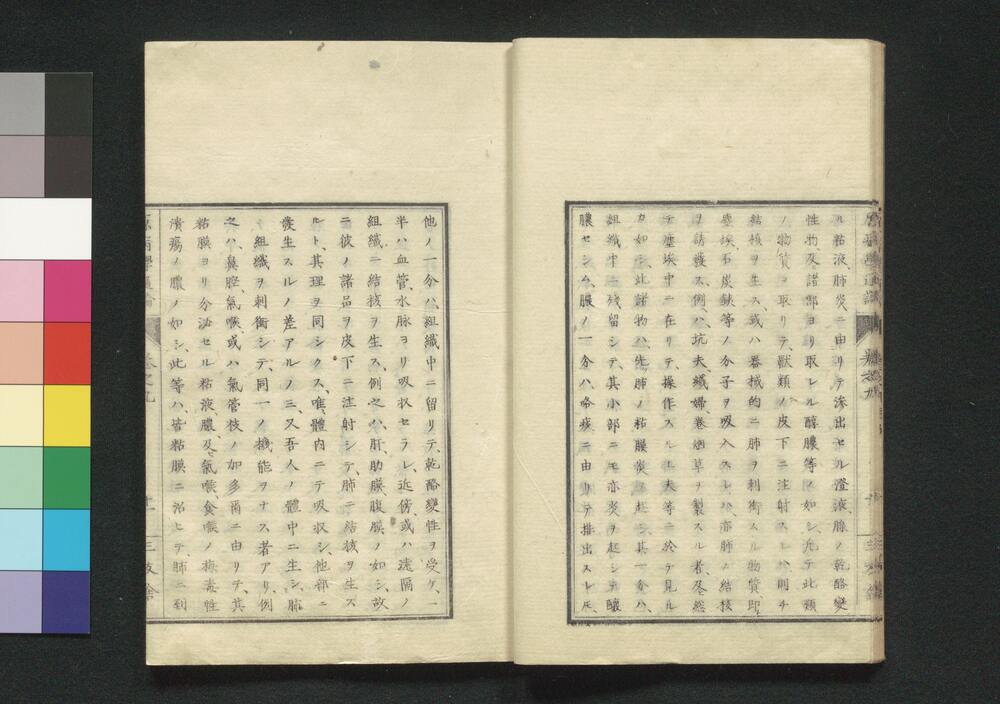 ル粘液、肺炎ニ由リテ滲出セル澄液腺ノ乾酪變
性物、及諸部ヨリ取レル醇膿等ノ如シ、凡テ此類
ノ物質ヲ取リテ、獸類ノ皮下ニ注射スレハ則チ
結核ヲ生ス、或ハ器械的ニ肺ヲ刺衝スル物質、即
塵埃、石炭、鐵等ノ分子ヲ吸入スレハ、亦肺ノ結核
ヲ誘發ス、例ハ坑夫織婦、卷烟草ヲ製スル者、及
テ塵埃中ニ在リテ、操作スル工夫等ニ於テ見ル
カ如シ、此諸物ハ、先肺ノ粘膜炎ヲ起シ、其一分ハ、
組織中ニ殘留シテ、其小部ニモ亦炎ヲ起シ釀
膿セシム、膿ノ一分ハ、咯痰ニ由リテ排出スレ𪜈、
他ノ一分ハ、組織中ニ留リテ、乾酪變性ヲ受ケ、一
半ハ血管、水脉ヨリ吸収セラレ、近傍或ハ遠隔ノ
組織ニ結核ヲ生ス、例之ハ肝、肋膜、腹膜ノ如シ、故
ニ彼ノ諸品ヲ皮下ニ注射シテ、肺ニ結核ヲ生ス
ルト、其理ヲ同シクス、唯體内ニテ吸収シ、他部ニ
發生スルノ差アルノミ、又吾人ノ體中ニ生シ、肺
組織ヲ刺衝シテ、同一ノ機能ヲナス者アリ、例
之ハ、鼻腔、氣喉、或ハ氣管枝ノ如多爾ニ由リテ、其
粘膜ヨリ分泌セル粘液、膿、及氣喉、食喉ノ梅毒性
潰瘍ノ膿ノ如シ、此等ハ、皆粘膜ニ沿ヒテ、肺ニ到